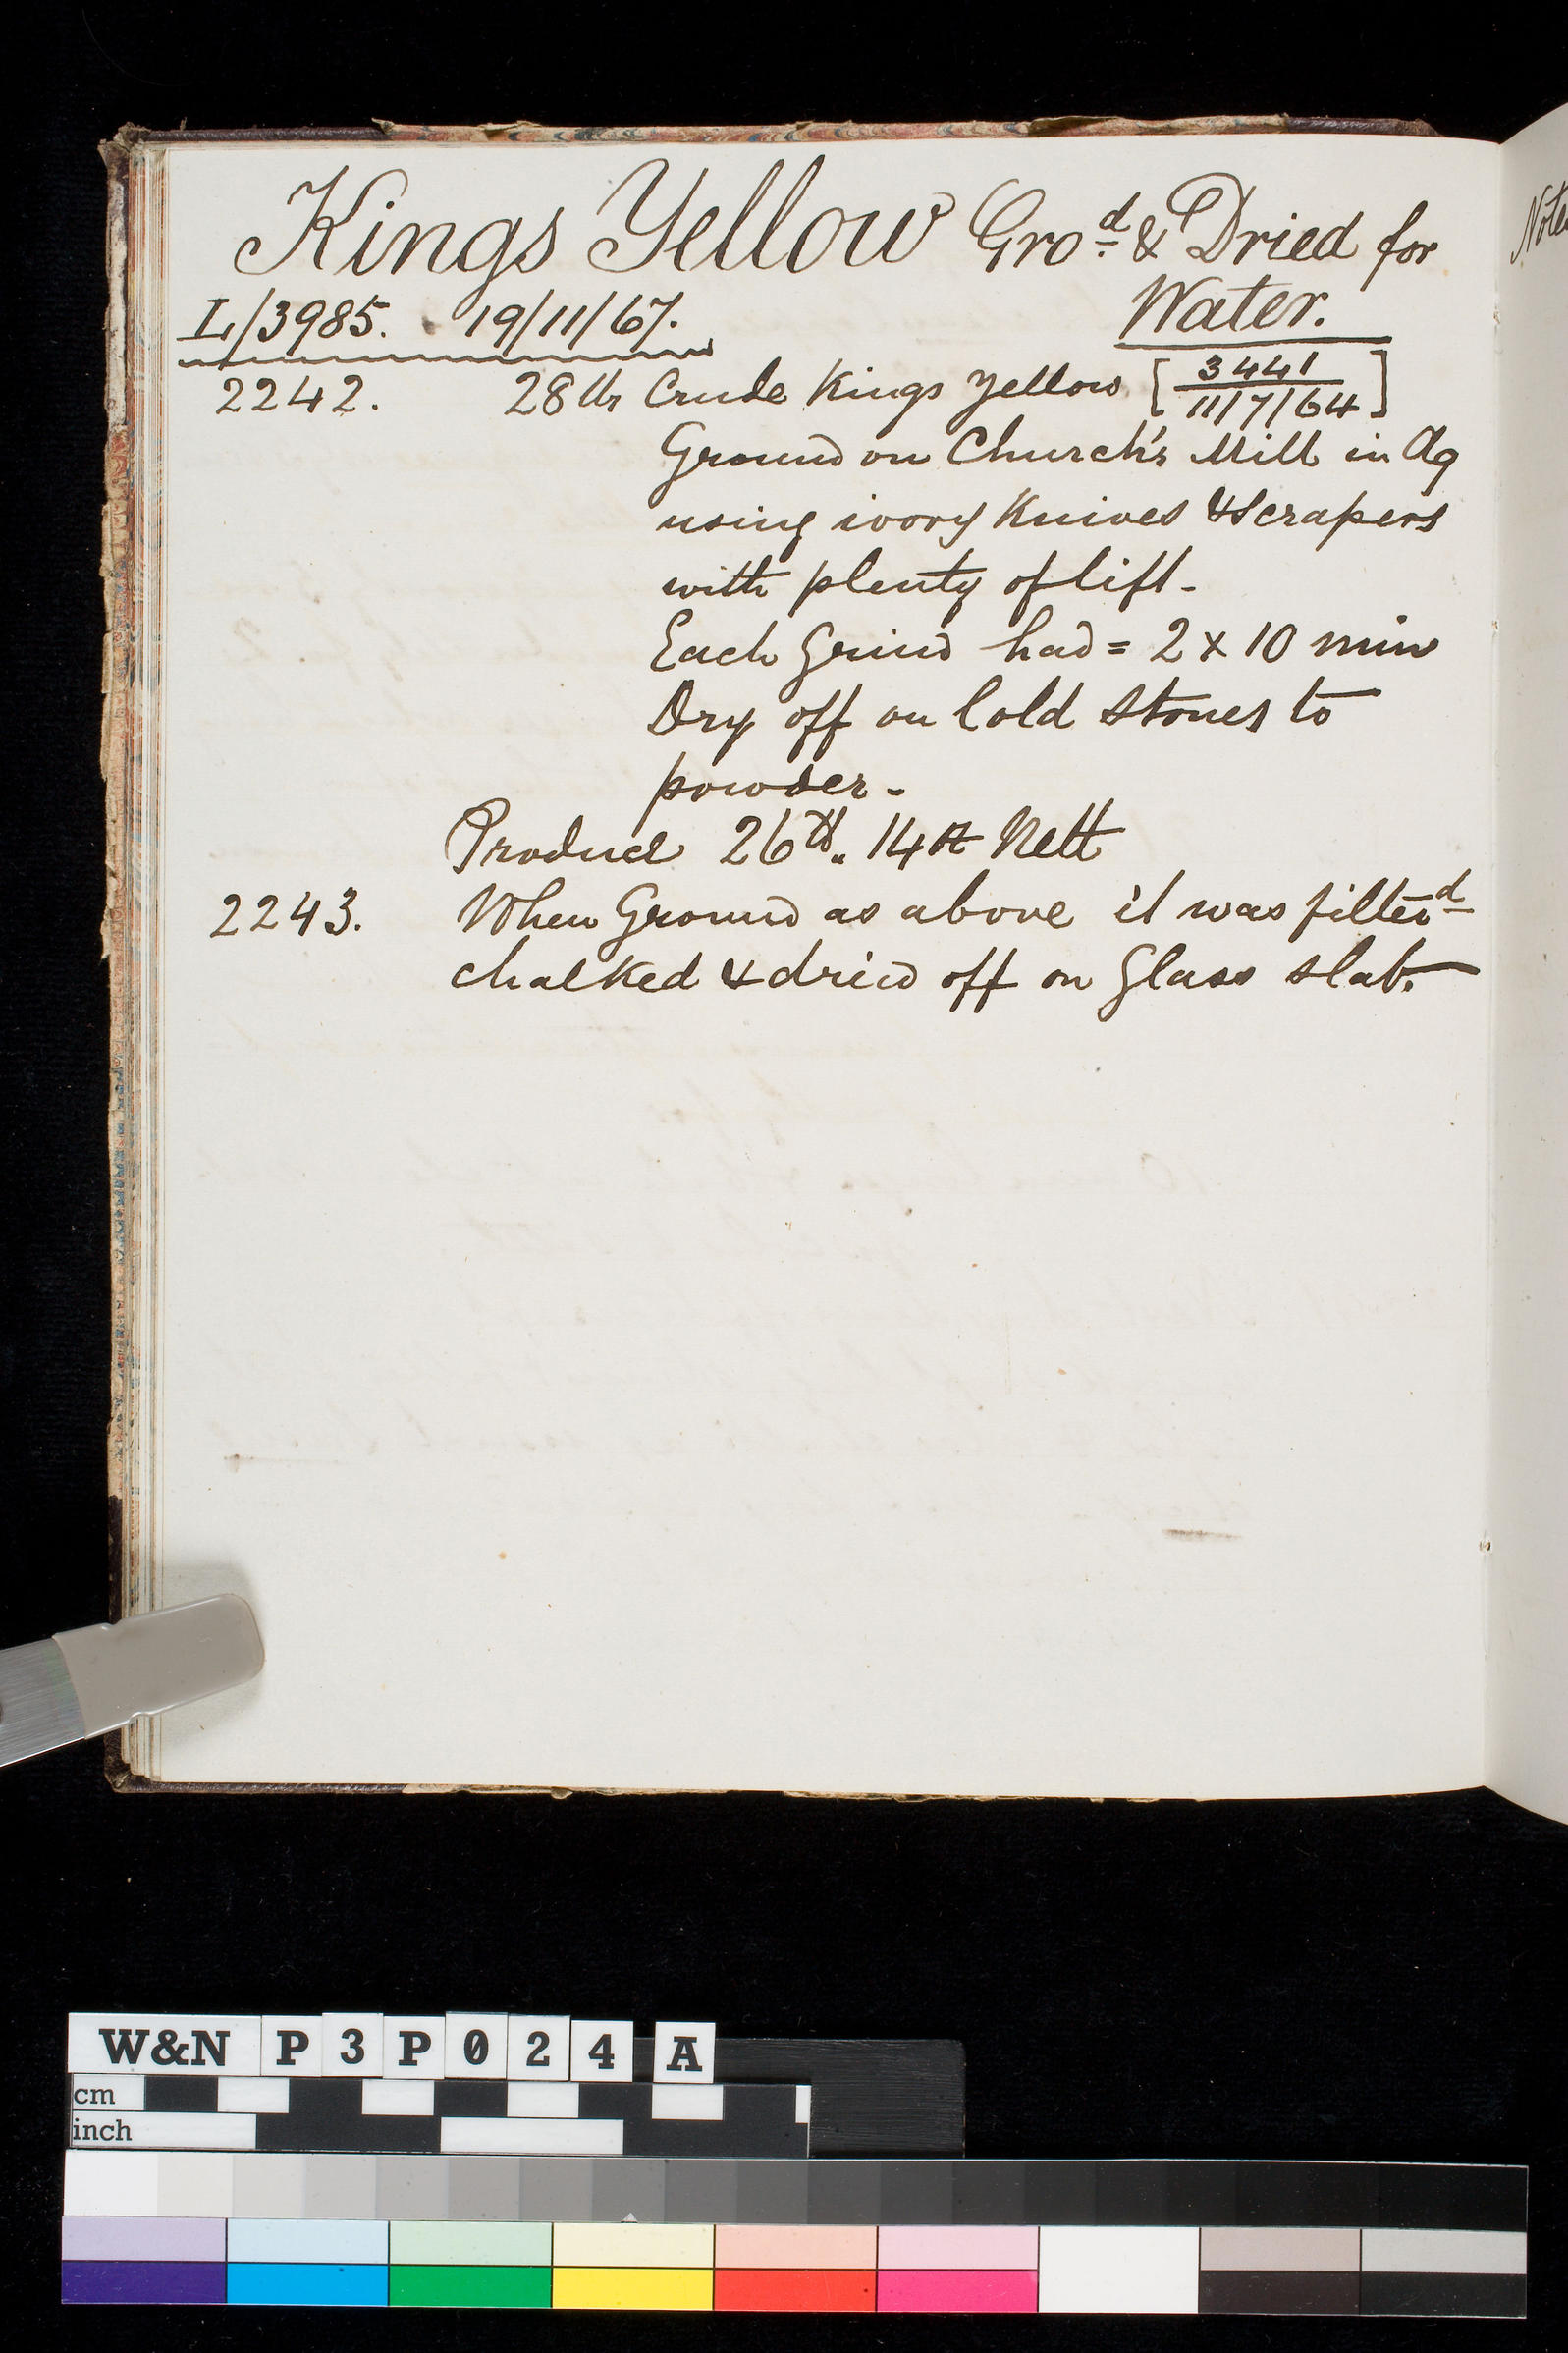 Kings Yellow Gro^d & Dried for
Water.
L/3985. 19/11/67.
2242. 28 lbs Crude Kings Yellow [3441 / 11/7/64]
Ground on Church's Mill in Aq
using ivory Knives & Scrapers
with plenty of lift -
Each Grind had = 2 x 10 min
Dry off on Cold Stones to
powder -
Produce 26 lb „ 14 oz Nett
2243. When Ground as above it was filter^d
chalked & dried off on Glass slab.
Note
W&N P3P024A
cm
inch